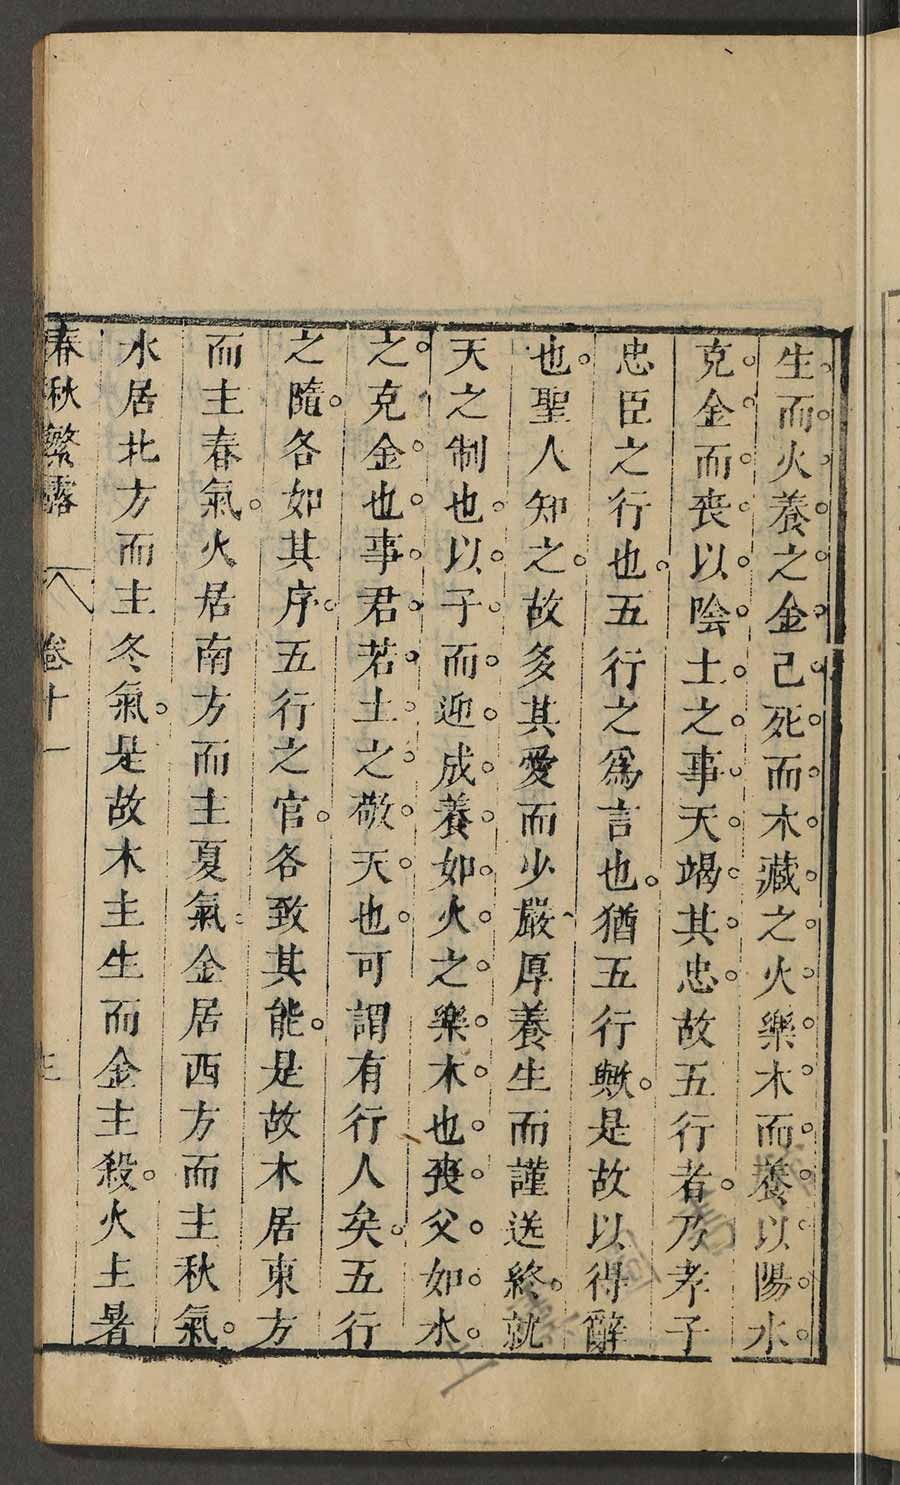 生而火養之金己死而木藏之火樂木而養以陽水
克金而喪以陰土之事天竭其忠故五行者乃孝子
忠臣之行也五行之爲言也猶五行歟是故以得辭
也聖人知之故多其愛而少嚴厚養生而謹送終就
天之制也以子而迎成養如火之樂木也喪父如水
之克金也事君若土之敬天也可謂有行人矣五行
之隨各如其序五行之官各致其能是故木居東方
而主春氣火居南方而主夏氣金居西方而主秋氣
水居北方而主冬氣是故木主生而金主殺火主暑
春秋繁露 卷十一